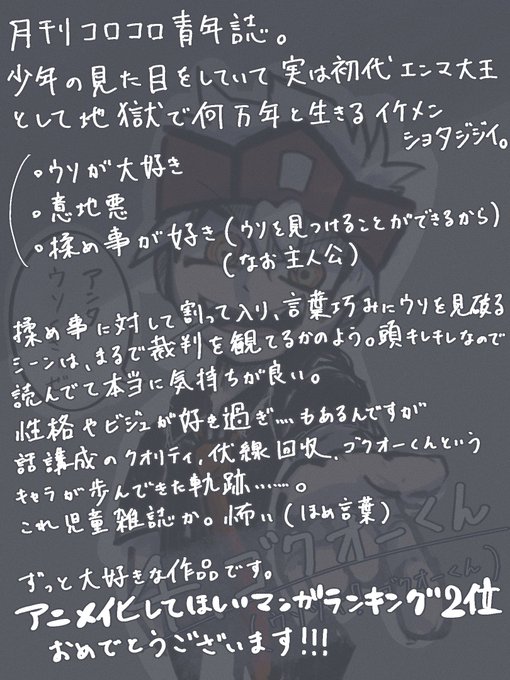 月刊コロコロ青年誌。
少年の見た目をしていて実は初代エンマ大王
として地獄で何万年と生きるイケメン
ショタジジイ。
・ウソが大好き
・意地悪
・揉め事が好き(ウソを見つけることができるから)
(なお主人公)
揉め事に対して割って入り、言葉巧みにウソを見破る
シーンは、まるで裁判を観てるかのよう。頭キレキレなので
読んでて本当に気持ちが良い。
性格やビジュが好き過ぎ……もあるんですが
話講成のクオリティ、伏線回収、ゴクオーくんという
キャラが歩んできた軌跡………。
これ児童雑誌か。怖い(ほめ言葉)
ゴクオーくん
ずっと大好きな作品です。
アニメイヒしてほしいマンガランキング2位
おめでとうございます!!!